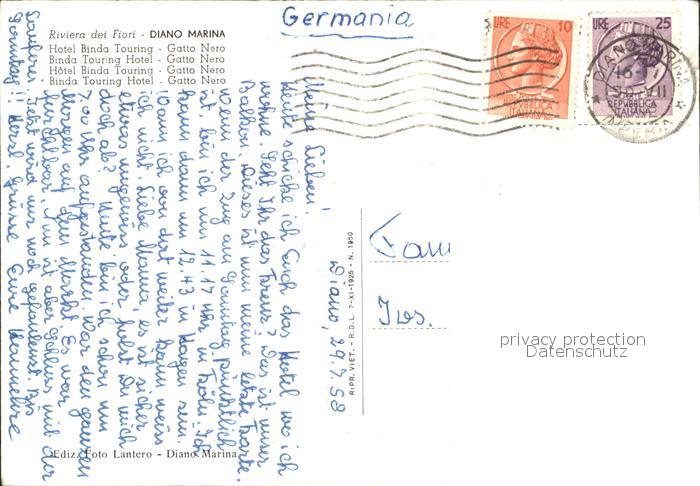 Riviera dei Fiori - DIANO MARINA
Hotel Binda Touring - Gatto Nero
Binda Touring Hotel - Gatto Nero
Hôtel Binda Touring - Gatto Nero
Binda Touring Hotel - Gatto Nero
Germania
LIRE 10
REPVBBLICA ITALIANA
LIRE 25
REPVBBLICA ITALIANA
DIANO MARINA
Diano, 29.7.58
Meine Lieben!
Heute schicke ich Euch das Hotel wo ich
wohne. Seht Ihr das Kreuz? Das ist unser
Balkon. Dieses ist nun meine letzte Karte.
Wenn der Zug am Sonntag pünktlich
ist bin ich um 11.17 Uhr in Köln. Ich
kann dann um 12.43 in Hagen sein.
Wann ich von dort weiter kann weiss
ich nicht. Liebe Mama, es ist sicher
etwas ungewiss oder holst Du mich
doch ab? Heute bin ich schon um
7 00 Uhr aufgestanden. War den ganzen
Morgen auf dem Markt. Es war
furchtbar. Nun ist aber Schluss mit der
Lauferei. Jetzt wird nur noch gefaulenzt. Bis
Sonntag! Herzl. Grüsse Eure
RIPR. VIET. - R.D.L. 7-XI-1925 - N. 1950
Fam
Jos.
privacy protection
Datenschutz
Ediz. Foto Lantero - Diano Marina